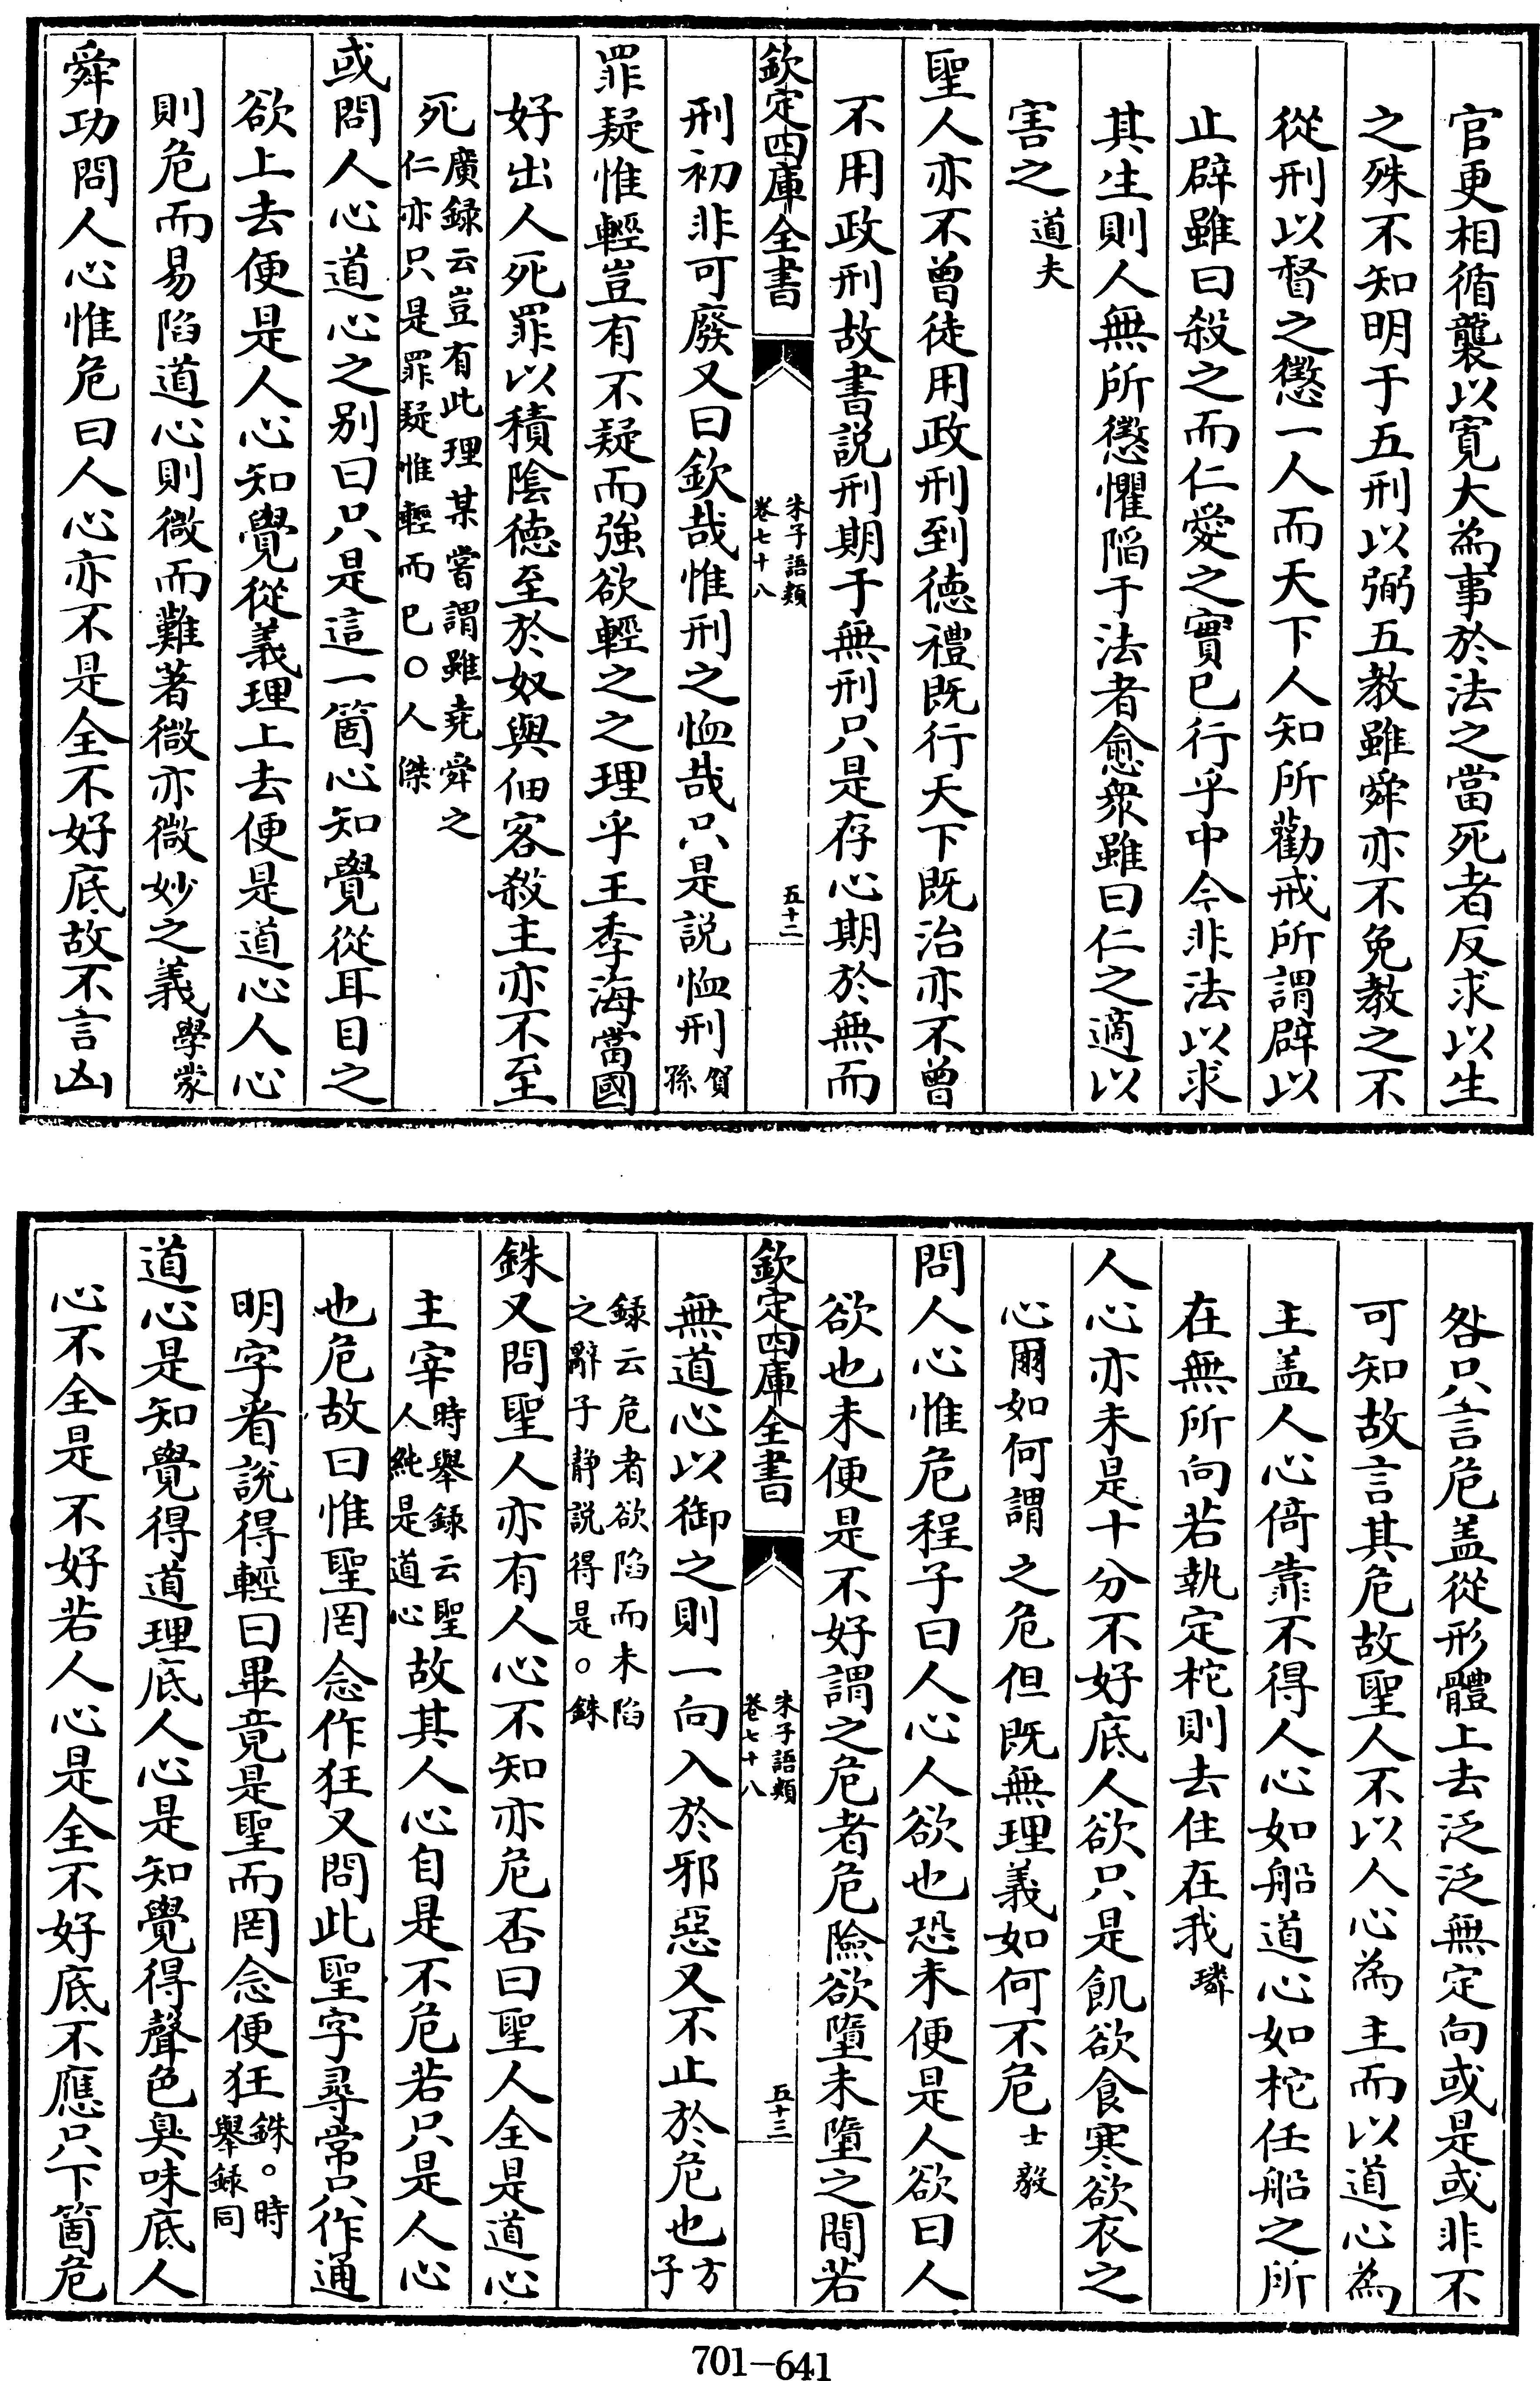 官更相循襲以寛大為事於法之當死者反求以生
之殊不知明于五刑以弼五教雖舜亦不免教之不
從刑以督之懲一人而天下人知所勸戒所謂辟以
止辟雖曰殺之而仁愛之實已行乎中今非法以求
其生則人無所懲懼陷于法者愈衆雖曰仁之適以
害之道夫
聖人亦不曾徒用政刑到德禮既行天下既治亦不曾
不用政刑故書説刑期于無刑只是存心期於無而
欽定四庫全書
朱子語類
卷七十八
五十二
刑初非可廢又曰欽哉惟刑之恤哉只是説恤刑賀孫
罪疑惟輕豈有不疑而強欲輕之之理乎王季海當國
好出人死罪以積陰德至於奴與佃客殺主亦不至
死廣録云豈有此理某嘗謂雖堯舜之仁亦只是罪疑惟輕而已○人傑
或問人心道心之别曰只是這一箇心知覺從耳目之
欲上去便是人心知覺從義理上去便是道心人心
則危而易陷道心則微而難著微亦微妙之義學蒙
舜功問人心惟危曰人心亦不是全不好底故不言凶
咎只言危盖從形體上去泛泛無定向或是或非不
可知故言其危故聖人不以人心為主而以道心為
主盖人心倚靠不得人心如船道心如柁任船之所
在無所向若執定柁則去住在我璘
人心亦未是十分不好底人欲只是飢欲食寒欲衣之
心爾如何謂之危但既無理義如何不危士毅
問人心惟危程子曰人心人欲也恐未便是人欲曰人
欲也未便是不好謂之危者危險欲墮未墮之間若
欽定四庫全書
朱子語類
卷七十八
五十三
無道心以御之則一向入於邪惡又不止於危也方子
録云危者欲陷而未陷之辭子静説得是○銖
銖又問聖人亦有人心不知亦危否曰聖人全是道心
主宰時舉録云聖人純是道心故其人心自是不危若只是人心
也危故曰惟聖罔念作狂又問此聖字尋常只作通
明字看說得輕曰畢竟是聖而罔念便狂銖○時舉録同
道心是知覺得道理底人心是知覺得聲色臭味底人
心不全是不好若人心是全不好底不應只下箇危
701-641